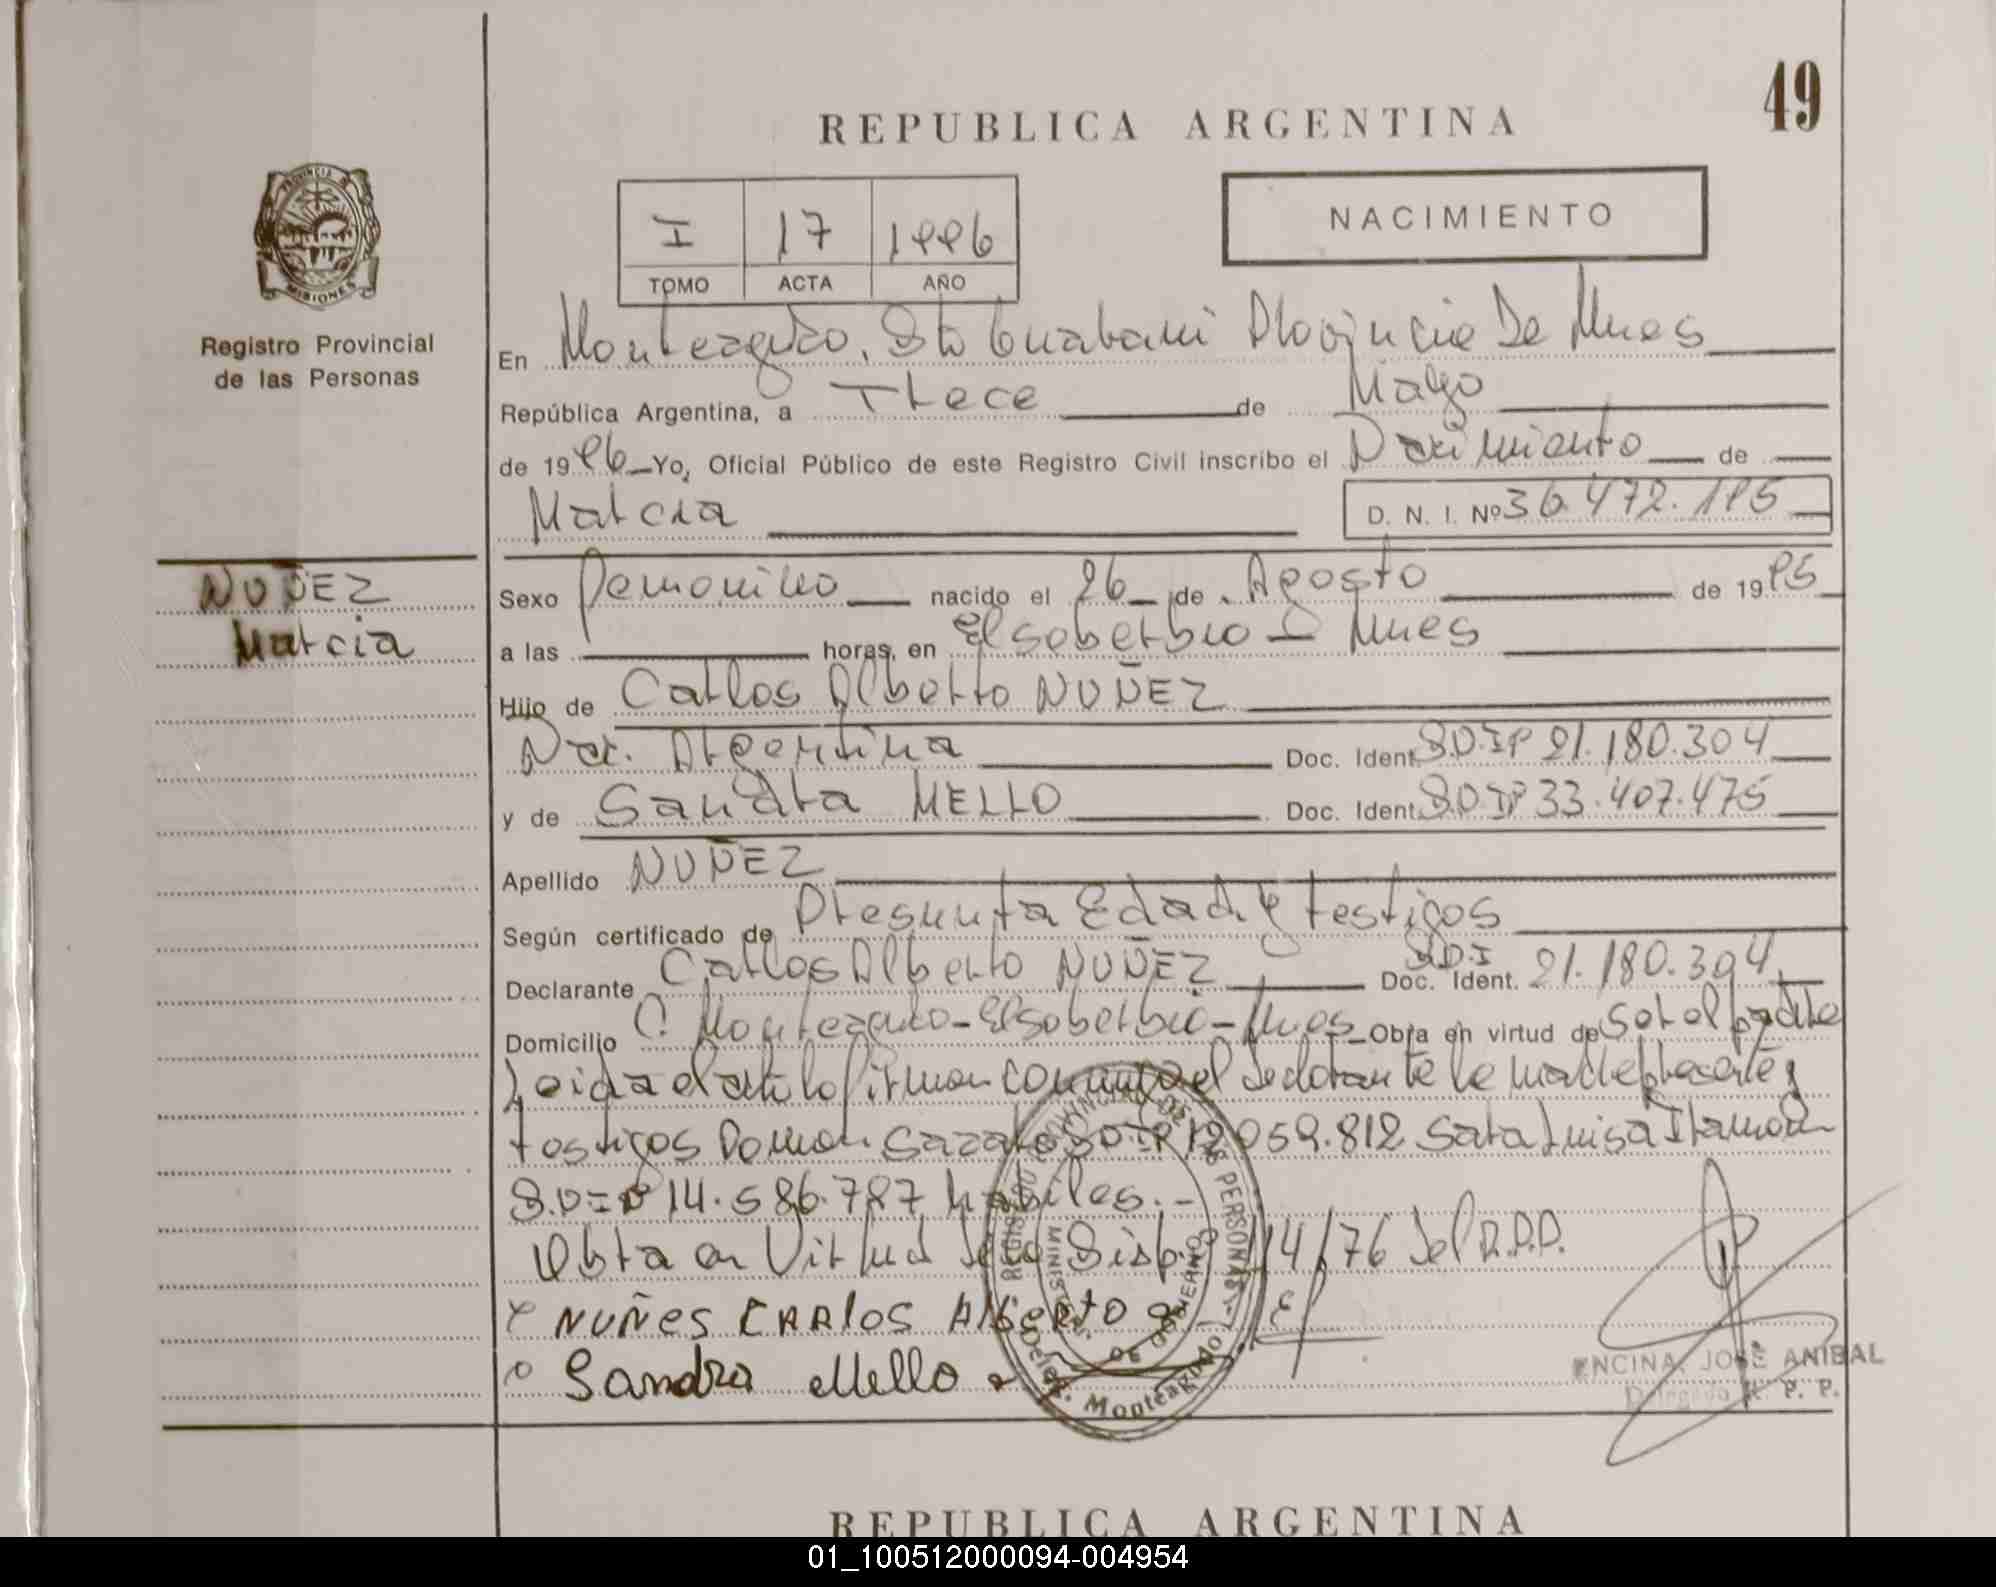 49
REPUBLICA ARGENTINA
I 17 1996
TOMO ACTA AÑO
NACIMIENTO
PROVINCIA DE
MISIONES
Registro Provincial
de las Personas
En Monteagudo, Dto Guarani Provincia De Mnes
República Argentina, a Trece de Mayo
de 1996 Yo, Oficial Público de este Registro Civil inscribo el Nacimiento de
Marcia D. N. I. Nº 36.472.195
NUÑEZ
Marcia
Sexo Femenino nacido el 26 de Agosto de 1995
a las horas, en El soberbio - Mnes
Hijo de Carlos Alberto NUÑEZ
Nac. Argentina Doc. Ident. 21.180.304
y de Sandra MELLO Doc. Ident. 33.407.475
Apellido NUÑEZ
Según certificado de Presunta Edad y testigos
Declarante Carlos Alberto NUÑEZ Doc. Ident. 21.180.304
Domicilio C. Monteagudo - El soberbio - Mnes Obra en virtud de Ser el padre
Leida el acta lo firman conmigo el declarante la madre presente y
testigos Ramon 12.059.812 Sara Luisa
14.586.787 habiles.-
Obra en Virtud de la Disp. 114/76 del R.P.P.
NUÑES CARLOS AlbERTO
Sandra Mello
REGISTRO PROVINCIAL DE LAS PERSONAS
MINISTERIO DE GOBIERNO
Deleg. Monteagudo
ENCINA, JOSE ANIBAL
Delegado R. P. P.
REPUBLICA ARGENTINA
01_100512000094-004954